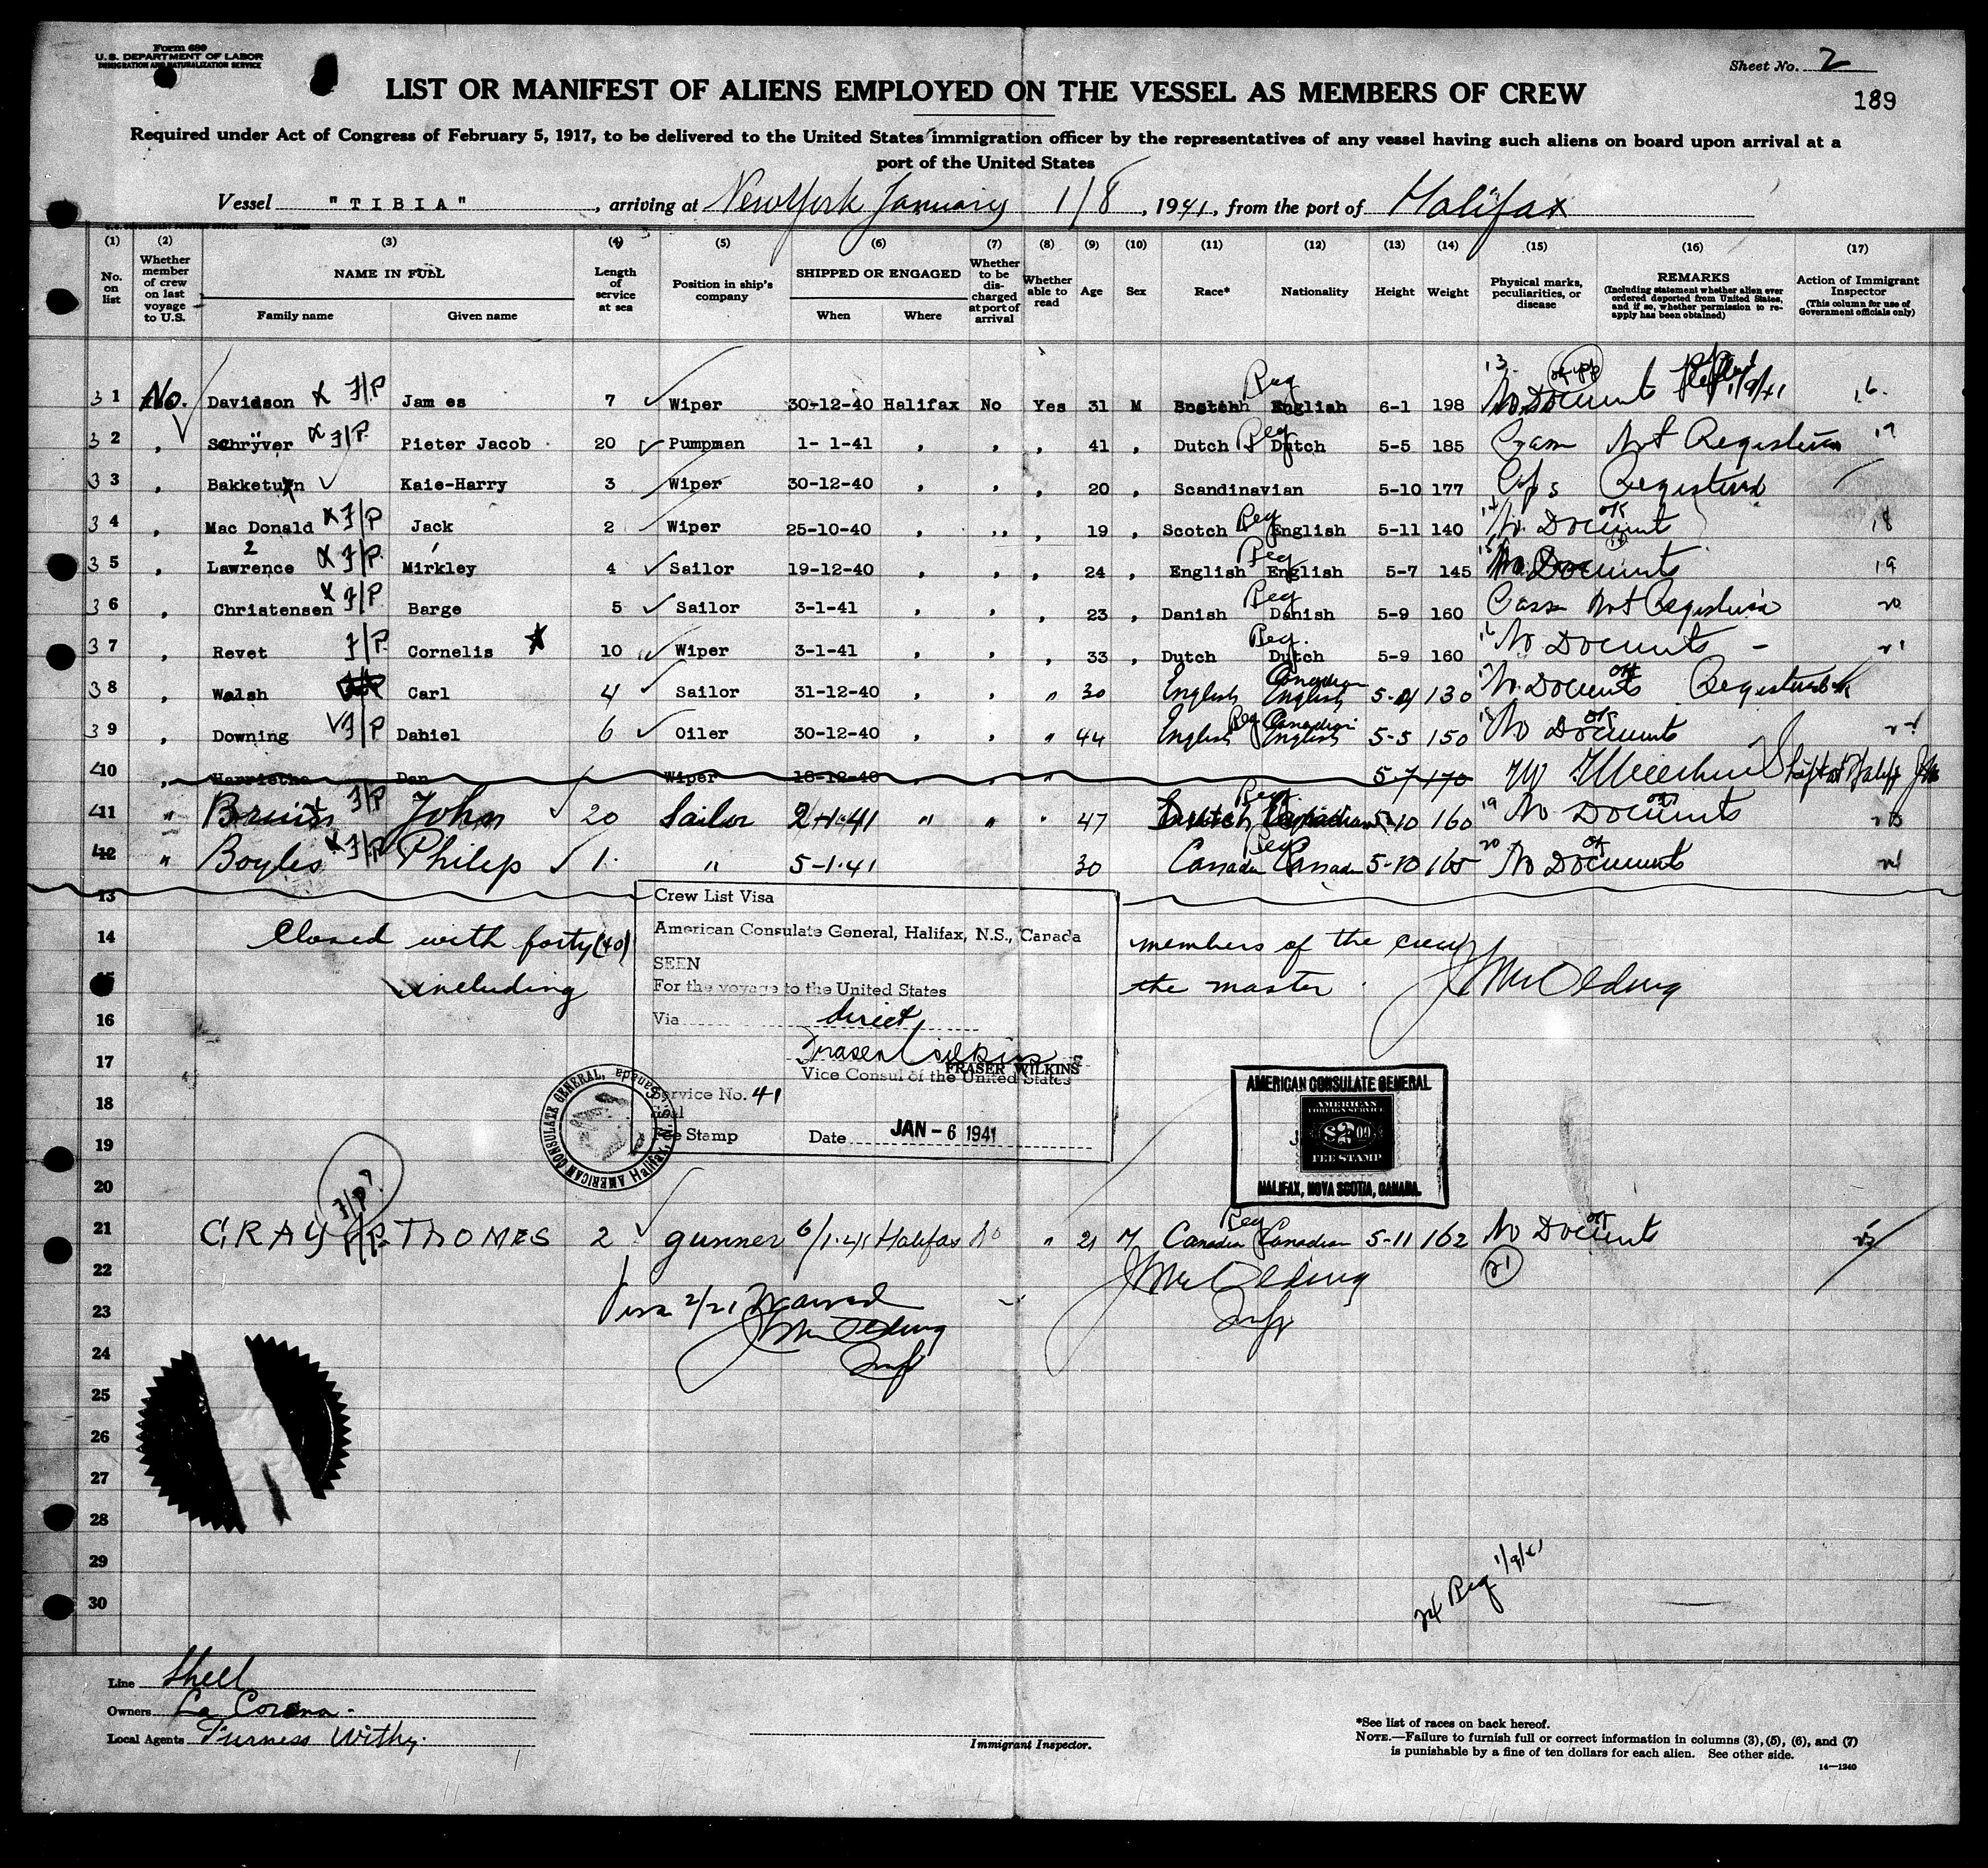 Form 689
U.S. DEPARTMENT OF LABOR
IMMIGRATION AND NATURALIZATION SERVICE
Sheet No. 2
189
LIST OR MANIFEST OF ALIENS EMPLOYED ON THE VESSEL AS MEMBERS OF CREW
Required under Act of Congress of February 5, 1917, to be delivered to the United States immigration officer by the representatives of any vessel having such aliens on board upon arrival at a
port of the United States
Vessel "TIBIA", arriving at New York January 1/8, 1941, from the port of Halifax
(1) (2) (3) (4) (5) (6) (7) (8) (9) (10) (11) (12) (13) (14) (15) (16) (17)
No. on list
Whether member of crew on last voyage to U.S.
NAME IN FULL
Family name Given name
Length of service at sea
Position in ship's company
SHIPPED OR ENGAGED
When Where
Whether to be discharged at port of arrival
Whether able to read
Age Sex Race* Nationality Height Weight
Physical marks, peculiarities, or disease
REMARKS
(Including statement whether alien ever ordered deported from United States, and if so, whether permission to reapply has been obtained)
Action of Immigrant Inspector
(This column for use of Government officials only)
31 No. Davidson F/P James 7 Wiper 30-12-40 Halifax No Yes 31 M Scotch Reg English 6-1 198 No Documents 1/9/41 16.
32 " Schrÿver F/P Pieter Jacob 20 Pumpman 1-1-41 " " " 41 " Dutch Reg Dutch 5-5 185 Not Registered 17
33 " Bakketun Kaie-Harry 3 Wiper 30-12-40 " " " 20 " Scandinavian 5-10 177 Registered
34 " Mac Donald F/P Jack 2 Wiper 25-10-40 " " " 19 " Scotch Reg English 5-11 140 14 No Documents OK 18
35 " Lawrence F/P Mirkley 4 Sailor 19-12-40 " " " 24 " English Reg English 5-7 145 15 No Documents 19
36 " Christensen F/P Barge 5 Sailor 3-1-41 " " " 23 " Danish Reg Danish 5-9 160 Not Registered 20
37 " Revet F/P Cornelis 10 Wiper 3-1-41 " " " 33 " Dutch Reg. Dutch 5-9 160 16 No Documents - 21
38 " Walsh Carl 4 Sailor 31-12-40 " " " 30 English Canadian English 5- 130 No Documents OK Registered
39 " Downing F/P Daniel 6 Oiler 30-12-40 " " " 44 English Reg Canadian English 5-5 150 18 No Documents OK 22
40 " Dan Wiper 18-12-40 " " " 5-7 170
41 " F/P John 20 Sailor 2-1-41 " " " 47 Reg. 5-10 160 19 No Documents OK 23
42 " Boyles F/P Philip 1 " 5-1-41 30 Canada Reg Canada 5-10 165 20 No Documents OK 24
13
14 Closed with forty (40) members of the crew
15 including the master. J Mc Olding
Crew List Visa
American Consulate General, Halifax, N.S., Canada
SEEN
For the voyage to the United States
Via direct
Fraser Wilkins
FRASER WILKINS
Vice Consul of the United States
Service No. 41
Seal
Fee Stamp Date JAN - 6 1941
AMERICAN CONSULATE GENERAL, Halifax, N.S., Canada
AMERICAN CONSULATE GENERAL
AMERICAN
FOREIGN SERVICE
FEE STAMP
HALIFAX, NOVA SCOTIA, CANADA.
16
17
18
19
20
21 GRAY F/P THOMES 2 gunner 6/1-41 Halifax No " 21 M Canadian Reg Canadian 5-11 162 No Documents OK 25
22 J Mc Olding 21
23 Visa 2/21 Waived
J Mc Olding
24
25
26
27
28
29
30
24 Reg 1/9/41
Line Shell
Owners La Corona-
Local Agents Furness Withy.
Immigrant Inspector.
*See list of races on back hereof.
NOTE.—Failure to furnish full or correct information in columns (3), (5), (6), and (7)
is punishable by a fine of ten dollars for each alien. See other side.
14—1240